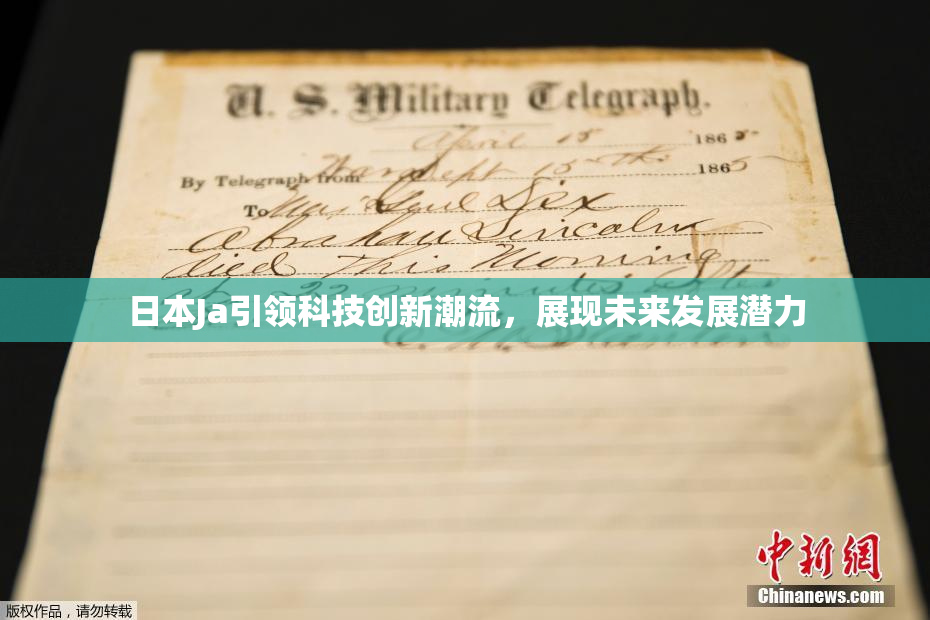 U. S. Military Telegraph.
April 15 1865
By Telegraph from War Dept 15th 1865
To Maj Genl Dix
Abraham Lincoln
died This Morning
22 minutes after
日本Ja引领科技创新潮流，展现未来发展潜力
中新网
Chinanews.com
版权作品，请勿转载